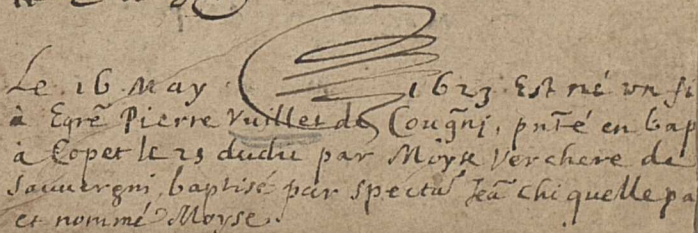 Le 16 May 1623 Est né un fi
à Egrē Pierre Vuillet de Cougnj, pnté en bap
à Copet le 23 dudit par Moyse Verchere de
Sauvergni, baptisé par spectā Jeā Chiquelle pa
et nommé Moyse.